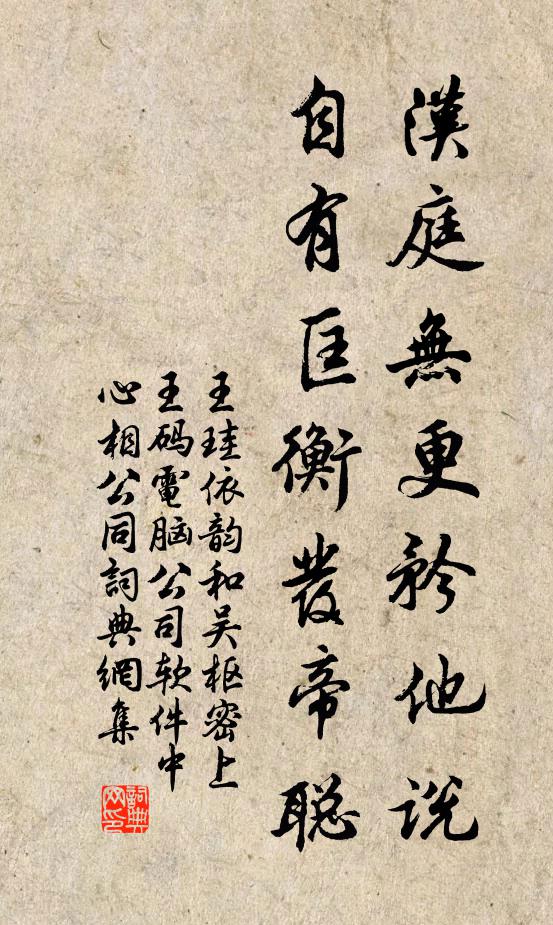 漢庭無更矜他說
自有匡衡發帝聪
王珪依韵和吴枢密上
王码電脑公司软件中
心相公同詞典網集
詞典网印